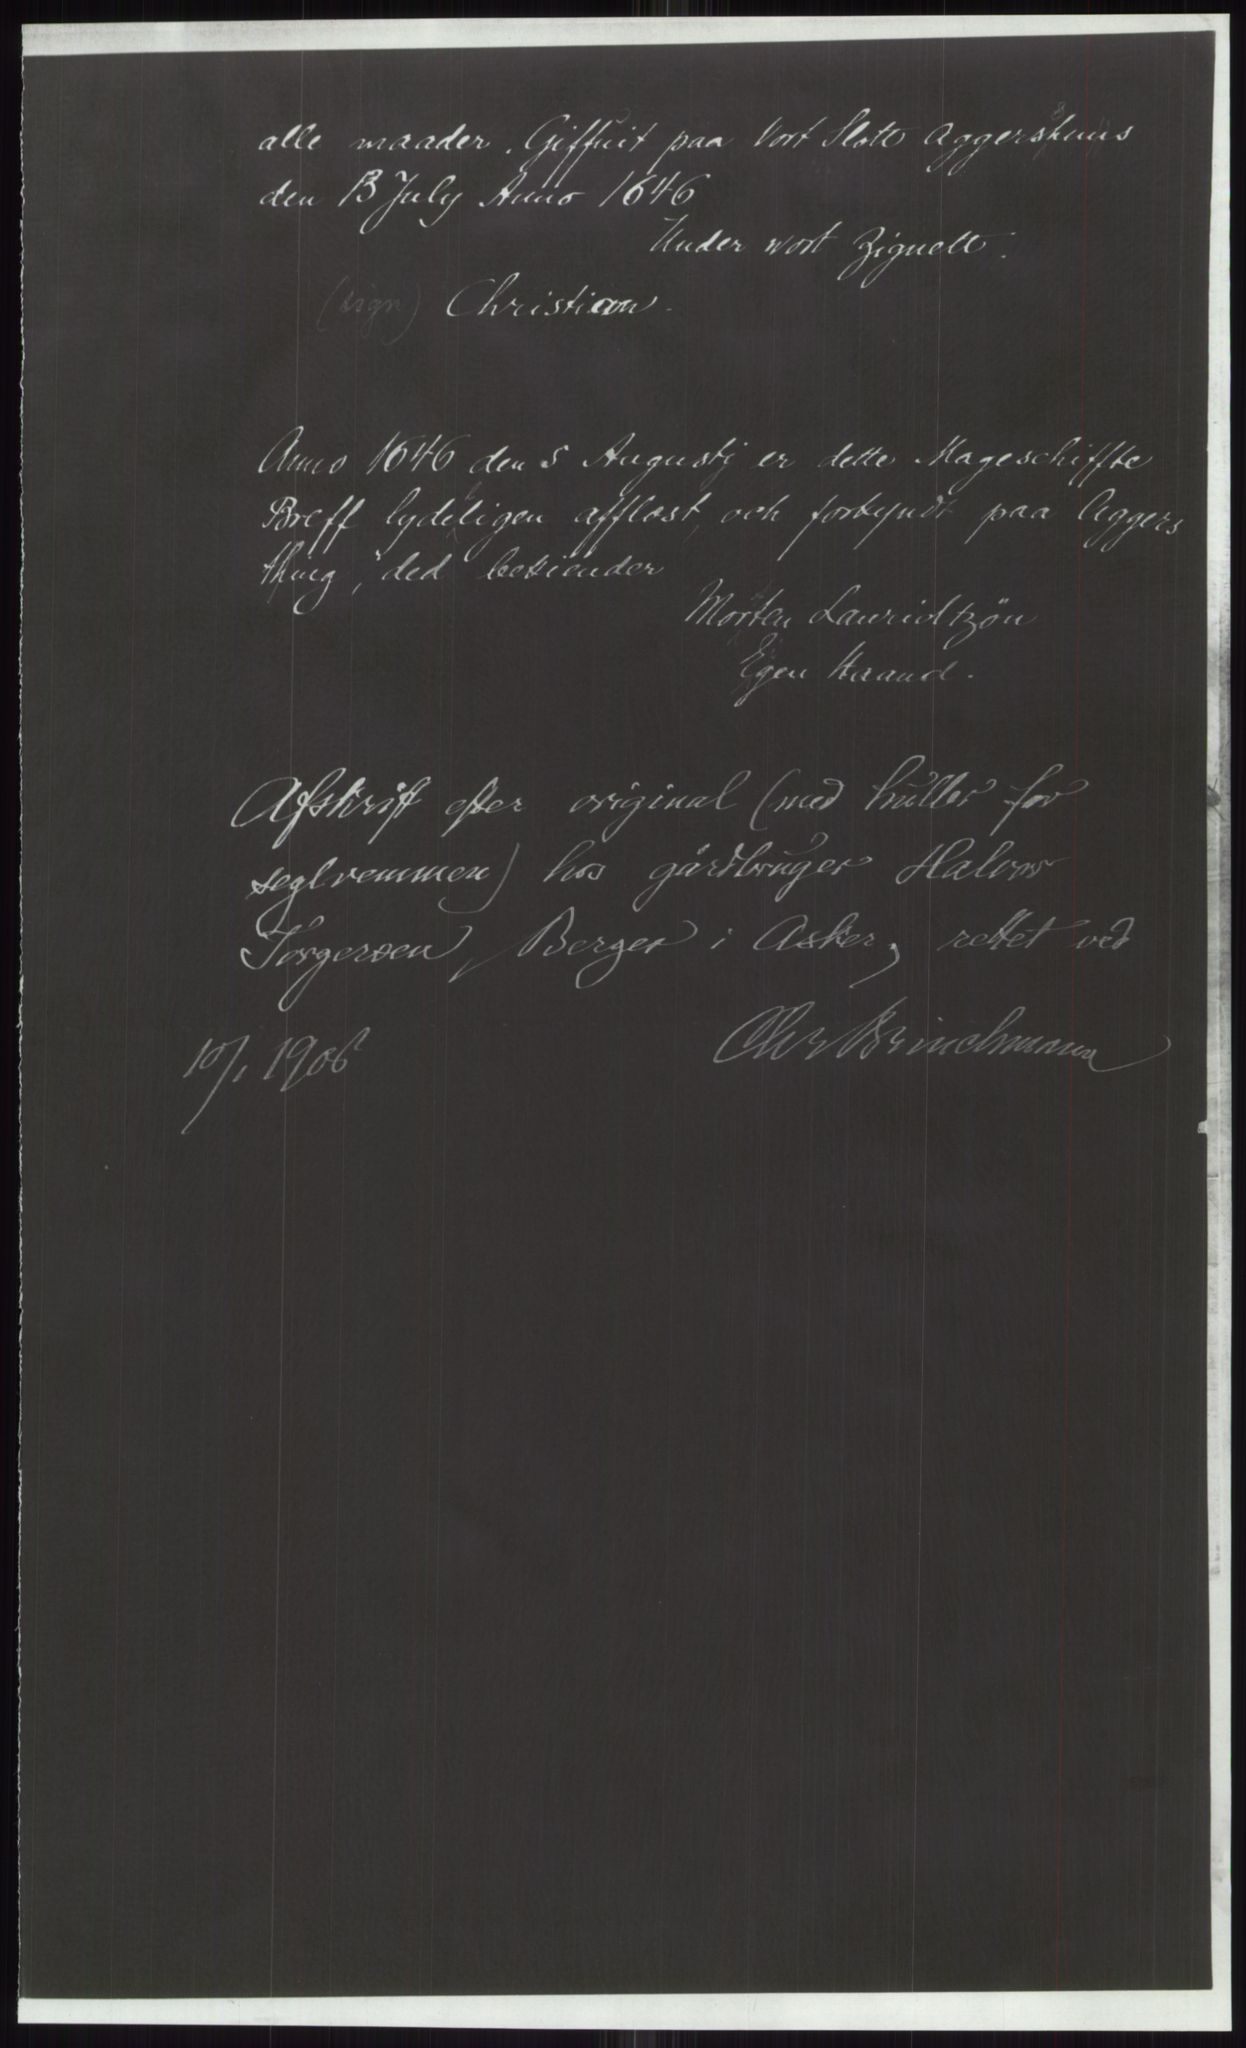 alle maader. Giffuit paa Vort Slott Aggershuus
den 13 July Anno 1646
Under wort Zignett.
(sign) Christian.
Anno 1646 den 5 Augustj er dette Mageschiffte
Breff lydeligen afflæst, och forkyndt paa Aggers
thing, ded bekiender
Morten Lauridtzøn
Egen Haand.
Afskrift efter original (med huller for
seglremmen) hos gårdbruger Halvor
Torgersen, Berger i Asker, rettet ved
10/1 1906 Chr Brinchmann